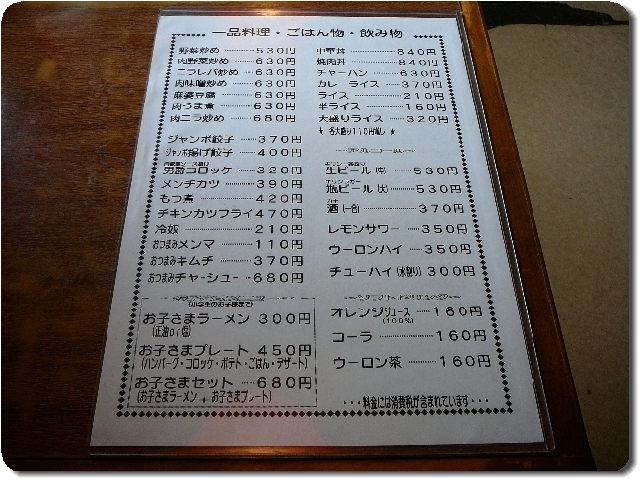 一品料理・ごはん物・飲み物
野菜炒め 530円
肉野菜炒め 630円
ニラレバ炒め 630円
肉味噌炒め 630円
麻婆豆腐 630円
肉うま煮 630円
肉ニラ炒め 680円
ジャンボ餃子 370円
ジャンボ揚げ餃子 400円
男爵コロッケ 320円
メンチカツ 390円
もつ煮 420円
チキンカツフライ 470円
冷奴 210円
おつまみメンマ 110円
おつまみキムチ 370円
おつまみチャーシュー 680円
(小学生のお子様まで)
お子さまラーメン 300円
(正油or塩)
お子さまプレート 450円
(ハンバーグ・コロッケ・ポテト・ごはん・デザート)
お子さまセット 680円
(お子さまラーメン + お子さまプレート)
中華丼 840円
焼肉丼 840円
チャーハン 630円
カレーライス 370円
ライス 210円
半ライス 160円
大盛りライス 320円
★ 各大盛り110円増し ★
生ビール(中) 530円
瓶ビール(大) 530円
酒(一合) 370円
レモンサワー 350円
ウーロンハイ 350円
チューハイ(水割り) 300円
オレンジジュース 160円
(100%)
コーラ 160円
ウーロン茶 160円
・・・料金には消費税が含まれています・・・